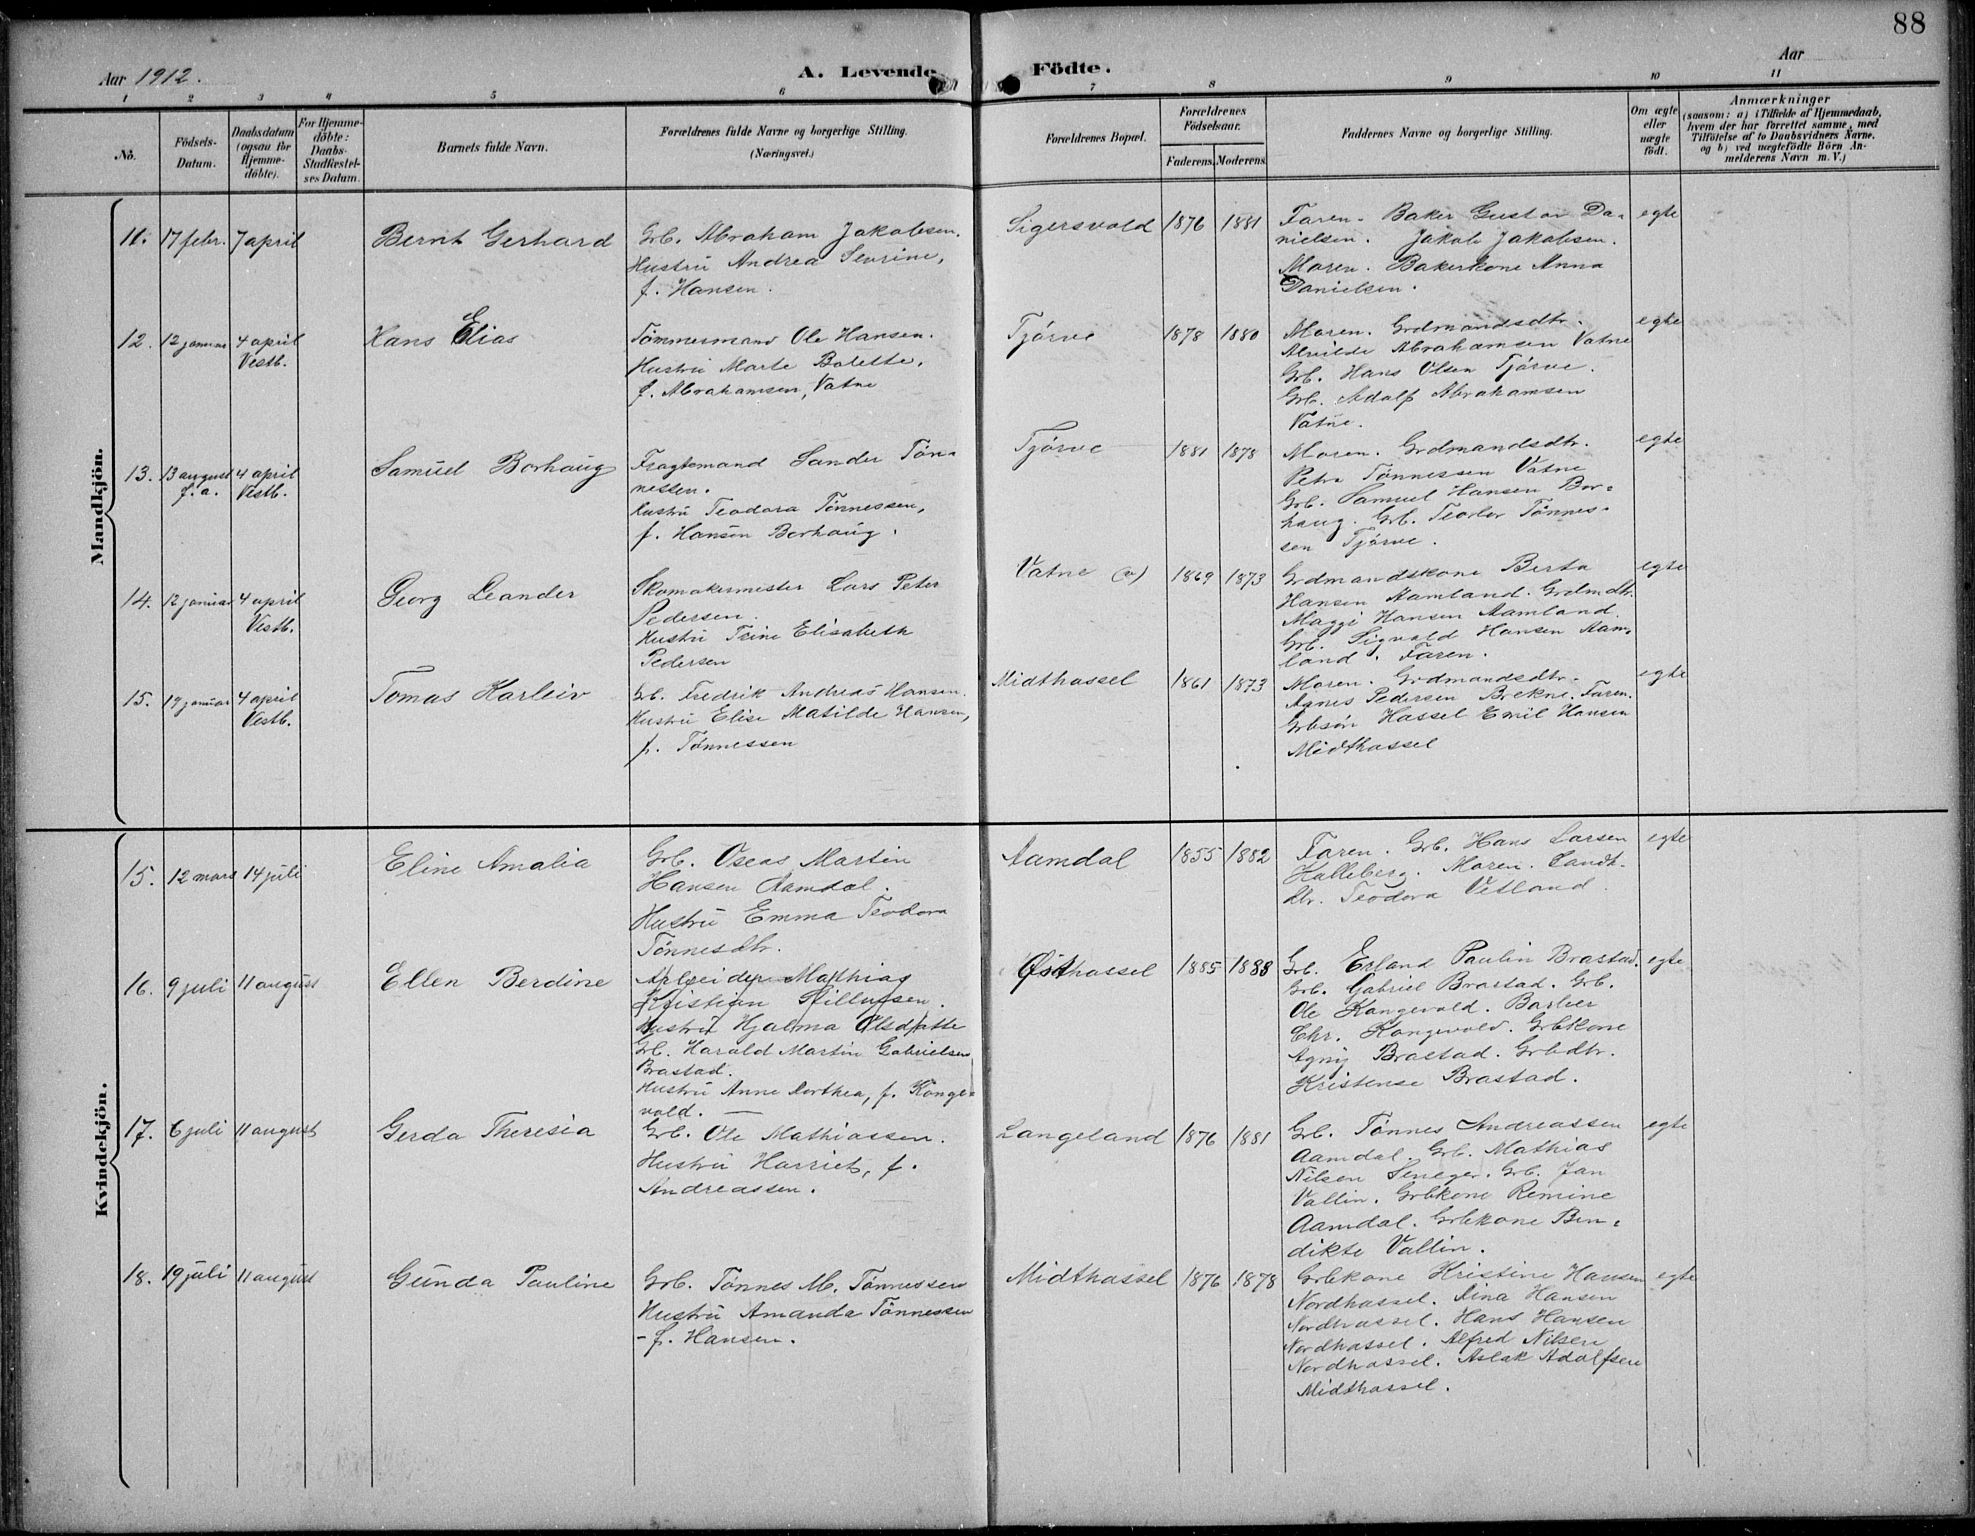 88
Aar 1912.
A. Levende Födte.
Aar
1 2 3 4 5 6 7 8 9 10 11
No.
Födsels-
Datum.
Daabsdatum
(ogsaa for
Hjemme-
döbte).
For Hjemme-
döbte:
Daabs-
Stadfæstel-
ses Datum.
Barnets fulde Navn.
Forældrenes fulde Navne og borgerlige Stilling.
(Næringsvei.)
Forældrenes Bopæl.
Forældrenes
Födselsaar.
Faderens. Moderens.
Faddernes Navne og borgerlige Stilling.
Om ægte
eller
uægte
födt.
Anmærkninger
(saasom: a) i Tilfælde af Hjemmedaab,
hvem der har forrettet samme, med
Tilföielse af to Daabsvidners Navne,
og b) ved uægtefödte Börn An-
melderens Navn m. V.)
Mandkjön.
11. 17 febr. 7 april
Bernt Gerhard
Grb. Abraham Jakobsen.
Hustru Andrea Sevrine,
f. Hansen.
Sigersvold 1876 1881
Faren. Baker Gustav Da-
nielsen. Jakob Jakobsen.
Moren. Bakerkone Anna
Danielsen.
egte
12. 12 januar 4 april
Vestb.
Hans Elias
Tømmermand Ole Hansen.
Hustru Marte Bolette,
f. Abrahamsen, Vatne
Tjørve 1878 1880
Moren. Grdmandsdtr.
Alvilde Abrahamsen Vatne
Grb. Hans Olsen Tjørve.
Grb. Adolf Abrahamsen
Vatne.
egte
13. 13 august 4 april
f. a. Vestb.
Samuel Borhaug
Fragtemand Sander Tøn-
nessen.
Hustru Teodora Tønnessen,
f. Hansen Borhaug.
Tjørve 1881 1878
Moren. Grdmandsdtr.
Petra Tønnessen Vatne
Grb. Samuel Hansen Bor-
haug. Grb. Teorlov Tønnes-
sen Tjørve.
egte
14. 12 januar 4 april
Vestb.
Georg Leander
Skomakermester Lars Peter
Pedersen.
Hustru Trine Elisabeth
Pedersen
Vatne (v) 1869 1873
Grdmandskone Berta
Hansen Aamland. Grdmdtr.
Maggi Hansen Aamland.
Grb. Sigvald Hansen Aam-
land. Faren.
egte
15. 19 januar 4 april
Vestb.
Tomas Karleiv
Grb. Fredrik Andreas Hansen.
Hustru Elise Matilde Hansen,
f. Tønnessen
Midthassel 1861 1873
Moren. Grdmandsdtr.
Agnes Pedersen Brekne. Faren.
Grbsøn Hassel Emil Hansen
Midthassel
egte
Kvindekjön.
15. 12 mars 14 juli
Eline Amalia
Grb. Oseas Martin
Hansen Aamdal.
Hustru Emma Teodora
Tønnesdtr.
Aamdal 1855 1882
Faren. Grb. Hans Larsen
Halleberg. Moren. Landh.
dtr. Teodora Vetland.
egte
16. 9 juli 11 august
Ellen Berdine
Arbeider Mathias
Kristian
Hustru Hjalma Olsdatte
Grb. Harald Martin Gabrielsen
Brastad.
Hustru Anne Dorthea, f. Konge-
vold. —
Østhassel 1885 1888
Grb. Erland Paulin Brastad.
Grb. Gabriel Brastad. Grb.
Ole Kongevold. Barber
Chr. Kongevold. Grbkone
Agny Brastad. Grbdtr.
Kristense Brastad.
egte
17. 6 juli 11 august
Gerda Theresia
Grb. Ole Mathiassen.
Hustru Harriet, f.
Andreassen.
Langeland 1876 1881
Grb. Tønnes Andreassen
Aamdal. Grb. Mathias
Nilsen Seneger. Grb. Jan
Vallin. Grbkone Remine
Aamdal. Grbkone Ben-
dikte Vallin.
egte
18. 19 juli 11 august
Gunda Pauline
Grb. Tønnes M. Tønnessen
Hustru Amanda Tønnessen
- f. Hansen.
Midthassel 1876 1878
Grbkone Kristine Hansen
Nordhassel. Dina Hansen
Nordhassel. Hans Hansen
Nordhassel. Alfred Nilsen
Nordhassel. Aslak Adolfsen
Midthassel.
egte